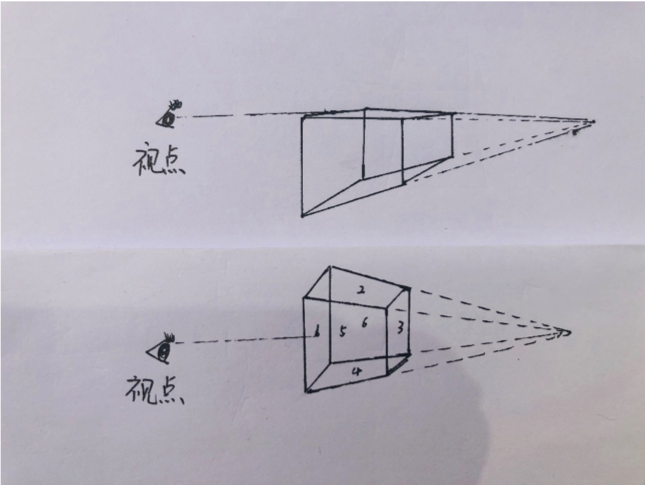 视点
2
1 5 6 3
4
视点